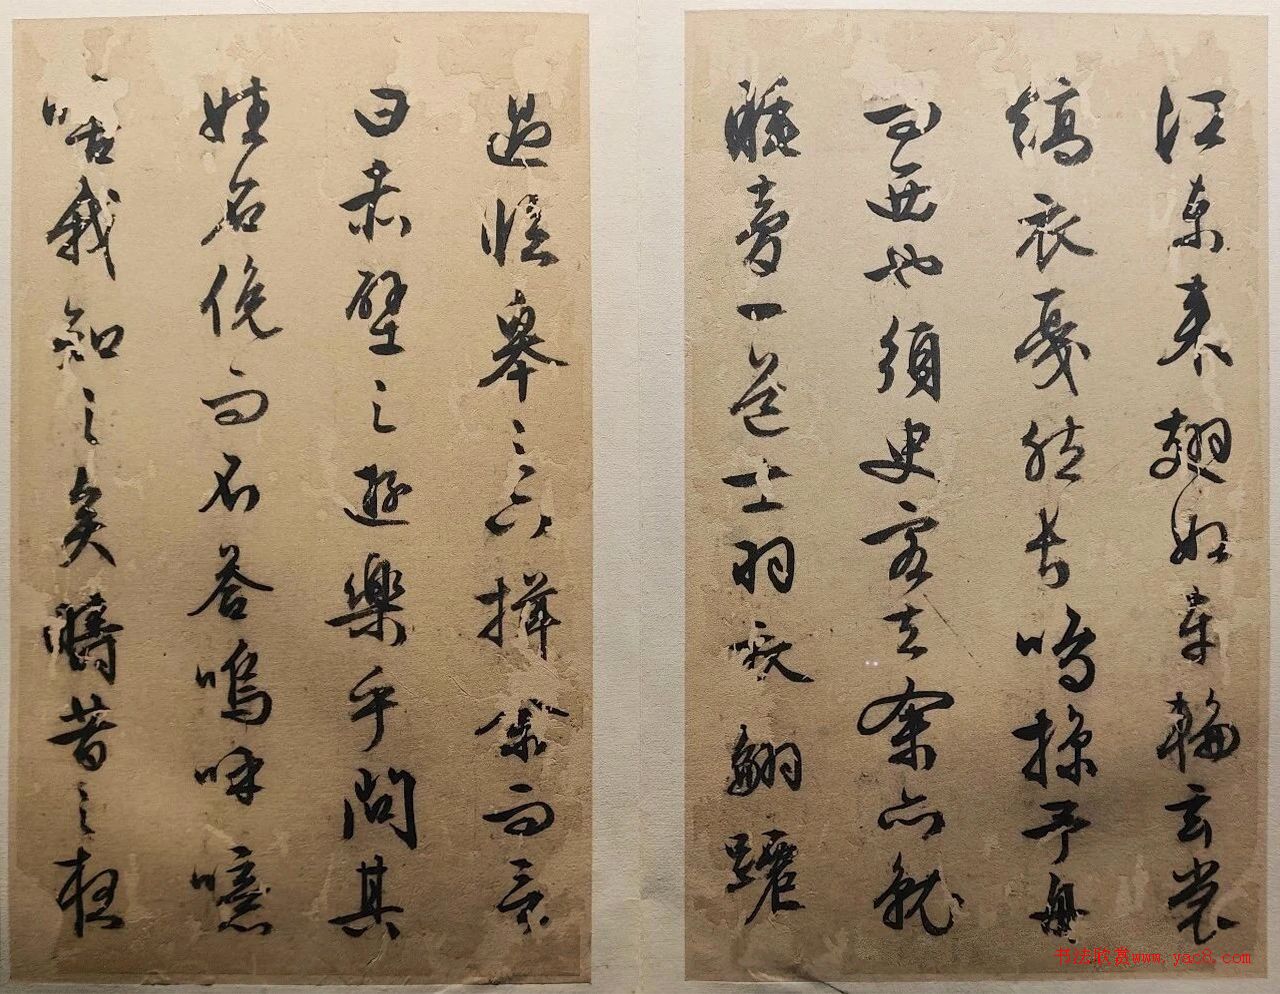 江東来翅如車輪玄裳
縞衣戛然長鳴掠予舟
而西也須臾客去余亦就
睡夢一道士羽衣翩躚
過臨皋之下揖余而言
曰赤壁之遊樂乎問其
姓名俛而不答嗚呼噫
嘻我知之矣疇昔之夜
书法欣赏www.yac8.com